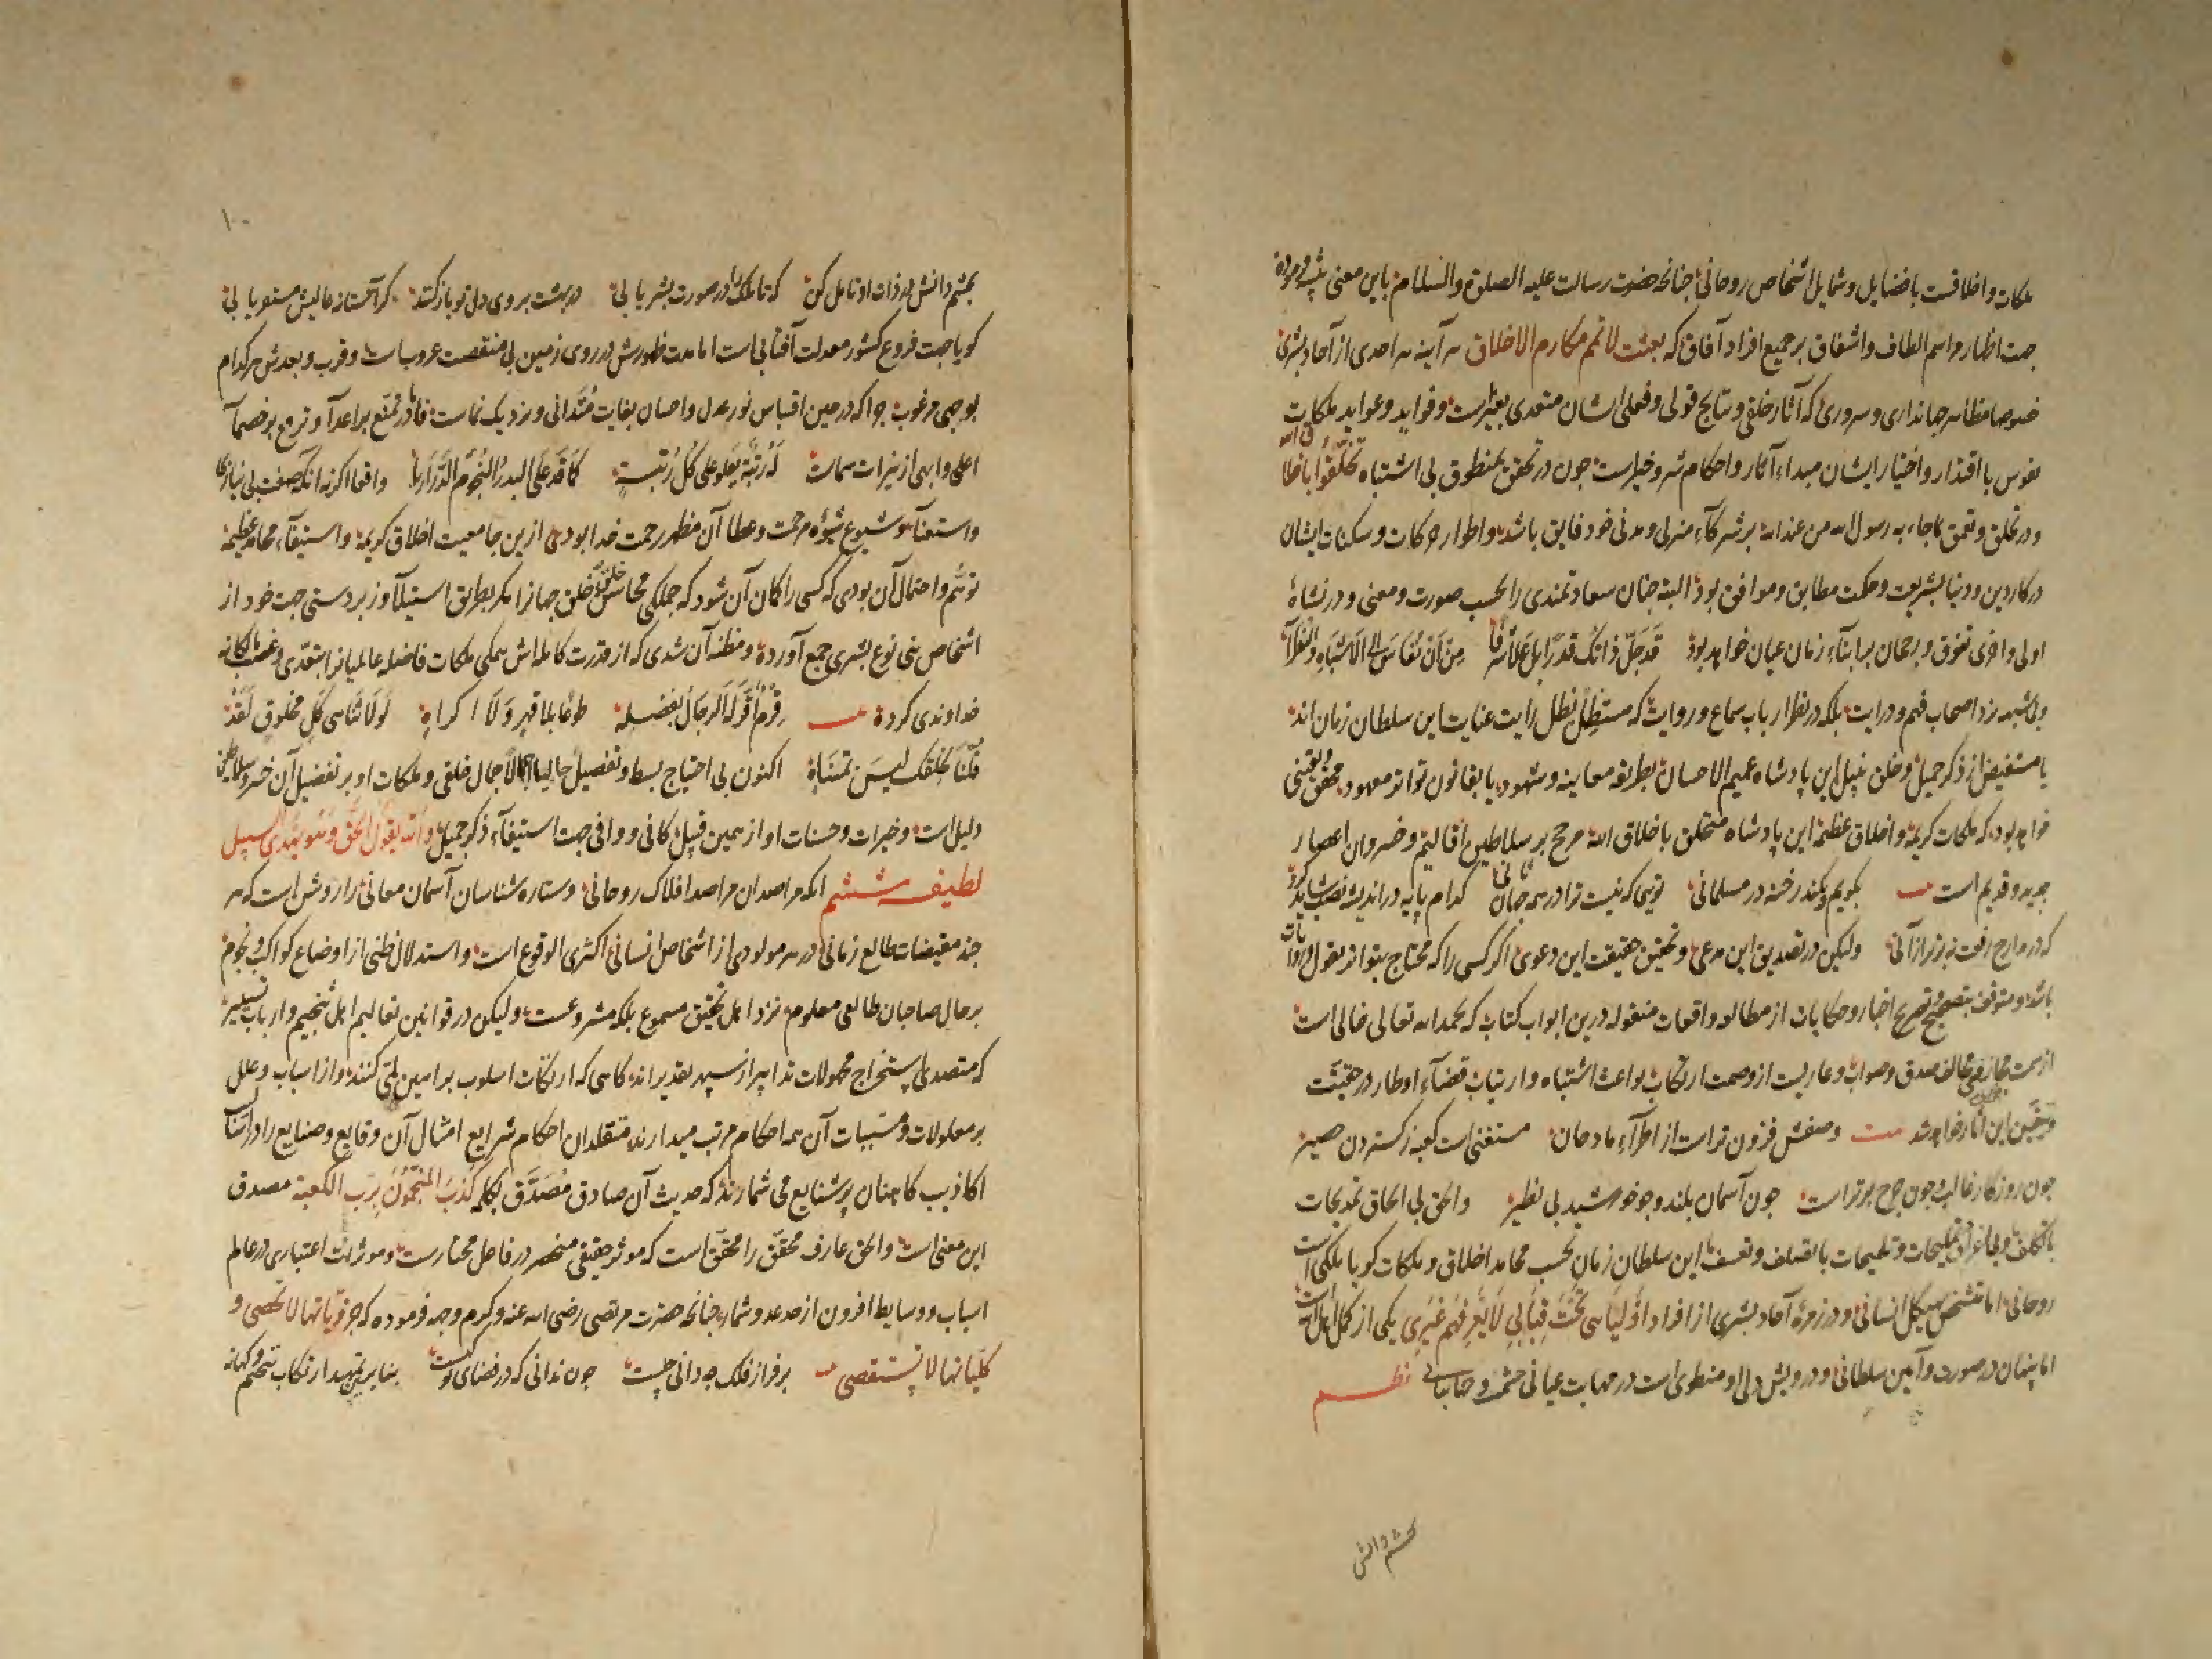 ملکات و اخلاقست با فضایل و شمایل اشخاص روحانی جنانجه حضرت رسالت علیه الصلوة والسلام باین معنی
جهت اظهار مراسم الطاف و اشفاق بر جمیع افراد آفاق که بعثت لاتمم مکارم الاخلاق هر آینه هر احدی از آحاد بشری
خصوصا مظاهر جهانداری و سروری که آثار خلقی و نتایج قولی و فعلی ایشان متعدی بغیرست و فواید و عواید ملکات
نفوس با اقتدار و اختیار ایشان مبداء آثار و احکام شر و خیرست جون در تحقق بمنطوق بی اشتباه تخلقوا باخلاق الله
و در تخلق و تعمق بماجاء به رسول الله من عند الله بر شرکآء منزلی و مدنی خود فایق باشد و اطوار حرکات و سکنات ایشان
در کار دین و دنیا بشریعت و حکمت مطابق و موافق بود البته جنان سعادتمندی را بحسب صورت و معنی و در نشاهٔ
اولی و اخری تفوق و رجحان بر ابنآء زمان عیان خواهد بود قد جل ذاتک قدرا بل علا شرفا من ان تقاس الی الاشباه و النظرآء
و بی شبهه نزد اصحاب فهم و درایت بلکه در نظر ارباب سماع و روایت که مستظل بظل رایت عنایت این سلطان زمان اند
یا مستفیض از ذکر جمیل و خلق نبیل این پادشاه عمیم الاحسان بطریقه معاینه و شهود یا بقانون تواتر معهود محقق و یقینی
خواهد بود که ملکات کریمه و اخلاق عظیمه این پادشاه متخلق باخلاق الله مرجح بر سلاطین اقالیم و خسروان اعصار
جدید و قدیم است بکویم و نکند رخنه در مسلمانی تویی که نیست ترا در همه جهان ثانی کدام پایه در اندیشه نصب شاید کرد
که در مدارج رفعت نه برتر از آنی ولیکن در تصدیق این مدعی و تحقیق حقیقت این دعوی اکر کسی را که محتاج بتواتر نقول و روایات
باشد و متوقف بتصحیح و تصریح اخبار و حکایات از مطالعه واقعات منقوله درین ابواب کتاب که بحمد الله تعالی خالی است
از سمت مخالف صدق و صواب و عاریست از وصمت ارتکاب بواعث اشتباه و ارتیاب قضآء اوطار در حقیقت
این آثار خواهد شد بیت وصفش فزون تر است از اطرآء مادحان مستغنی است کعبه ز کستردن حصیر
جون روزکار غالب و جون جرخ برتر است جون آسمان بلند و جو خورشید بی نظیر والحق بی الحاق تمدیحات
با تکلف و تلمیحات با تصلف و تعسف این سلطان زمان بحسب محامد اخلاق و ملکات کویا ملکی است
روحانی اما متشخص بهیکل انسانی و در زمرهٔ آحاد بشری از افراد اولیایی تحت قبابی لایعرفهم غیری یکی از کمل اهل الله است
اما پنهان در صورت و آیین سلطانی و درویش دلی او منطوی است در مهابت عیانی حشمت و جهانبانی نظم
بحشم دانش
۱۰
بجشم دانش در ذات او تامل کن که تا ملک را در صورت بشر یابی در بهشت بروی دل تو باز کنند کر آستانه عالیش مستقر یابی
کویا جهت فروغ کشور معدلت آفتابی است اما مدت ظهورش در روی زمین بی منقصت غروب است و قرب و بعدش هر کدام
بوجهی مرغوب جرا که در حین اقتباس نور عدل و احسان بغایت متدانی و نزدیک نماست فاما در تمنع بر اعدآ و ترفع بر خصمآ
اعلی و ابهی از نیرات سماست له رتبة یعلو علی کل رتبة کما قد علی البدر النجوم الدراریا واقعا اکر نه آنکه صفت بی نیازی
و استغنآء و شیوع شیوهٔ مرحمت و عطا آن مظهر رحمت خدا بودی ازین جامعیت اخلاق کریمه و استیفآء محامد عظیمه
توهم و احتمال آن بودی که کسی را کمان آن شود که جملکی محاسن خلق و خلق جهانرا مکر بطریق استیلآ و زبردستی جهت خود از
اشخاص بنی نوع بشری جمع آورده و مظنه آن شدی که از قدرت کامله اش همکی ملکات فاضله عالمیانرا بتعدی و غصب مالکانه
خداوندی کرده قرم اقر له الرجال بفضله طوعا بلا قهر ولا اکراه لو لا تناهی کل مخلوق لقد
قلنا بخلقک لیس بمتناه اکنون بی احتیاج بسط و تفصیل حالیا اجمال خلقی و ملکات او بر تفضیل آن خسرو سلاطین
دلیل است و خیرات و حسنات او از همین قبیل کافی و وافی جهت استیفآء ذکر جمیل والله یقول الحق و هو یهدی السبیل
لطیفه ششم آنکه مراصدان مراصد افلاک روحانی و ستاره شناسان آسمان معانی را روشن است که هر
جند مقتضیات طالع زمانی در هر مولودی از اشخاص انسانی اکثری الوقوع است و استدلال ظنی از اوضاع کواکب و نجوم
بر حال صاحبان طالعی معلوم نزد اهل تحقیق مسموع بلکه مشروعست ولیکن در قوانین تعالیم اهل تنجیم و ارباب تسییر
که متصدی استخراج مجهولات تدابیر از سپهر تقدیر اند کاهی که ارتکاب اسلوب براهین لمی کنند و از اسباب و علل
بر معلولات و مسببات آن همه احکام مرتب میدارند متقلدان احکام شرایع امثال آن وقایع و صنایع را در اثنای
اکاذیب کاهنان پر شنایع می شمارند که حدیث آن صادق مصدق بکلمه کذب المنجمون برب الکعبة مصدق
این معنی است والحق عارف محقق را محقق است که موثر حقیقی منحصر در فاعل مختارست و موثرات اعتباری در عالم
اسباب و وسایط افزون از حد عد و شمار جنانجه حضرت مرتضی رضی الله عنه و کرم وجهه فرموده که جزویاتها لاتحصی و
کلیاتها لاتستقصی بر فراز فلک جه دانی جیست جون ندانی که در فضای تو کیست بنابرین تمهید ارتکاب تنجیم و کهانه